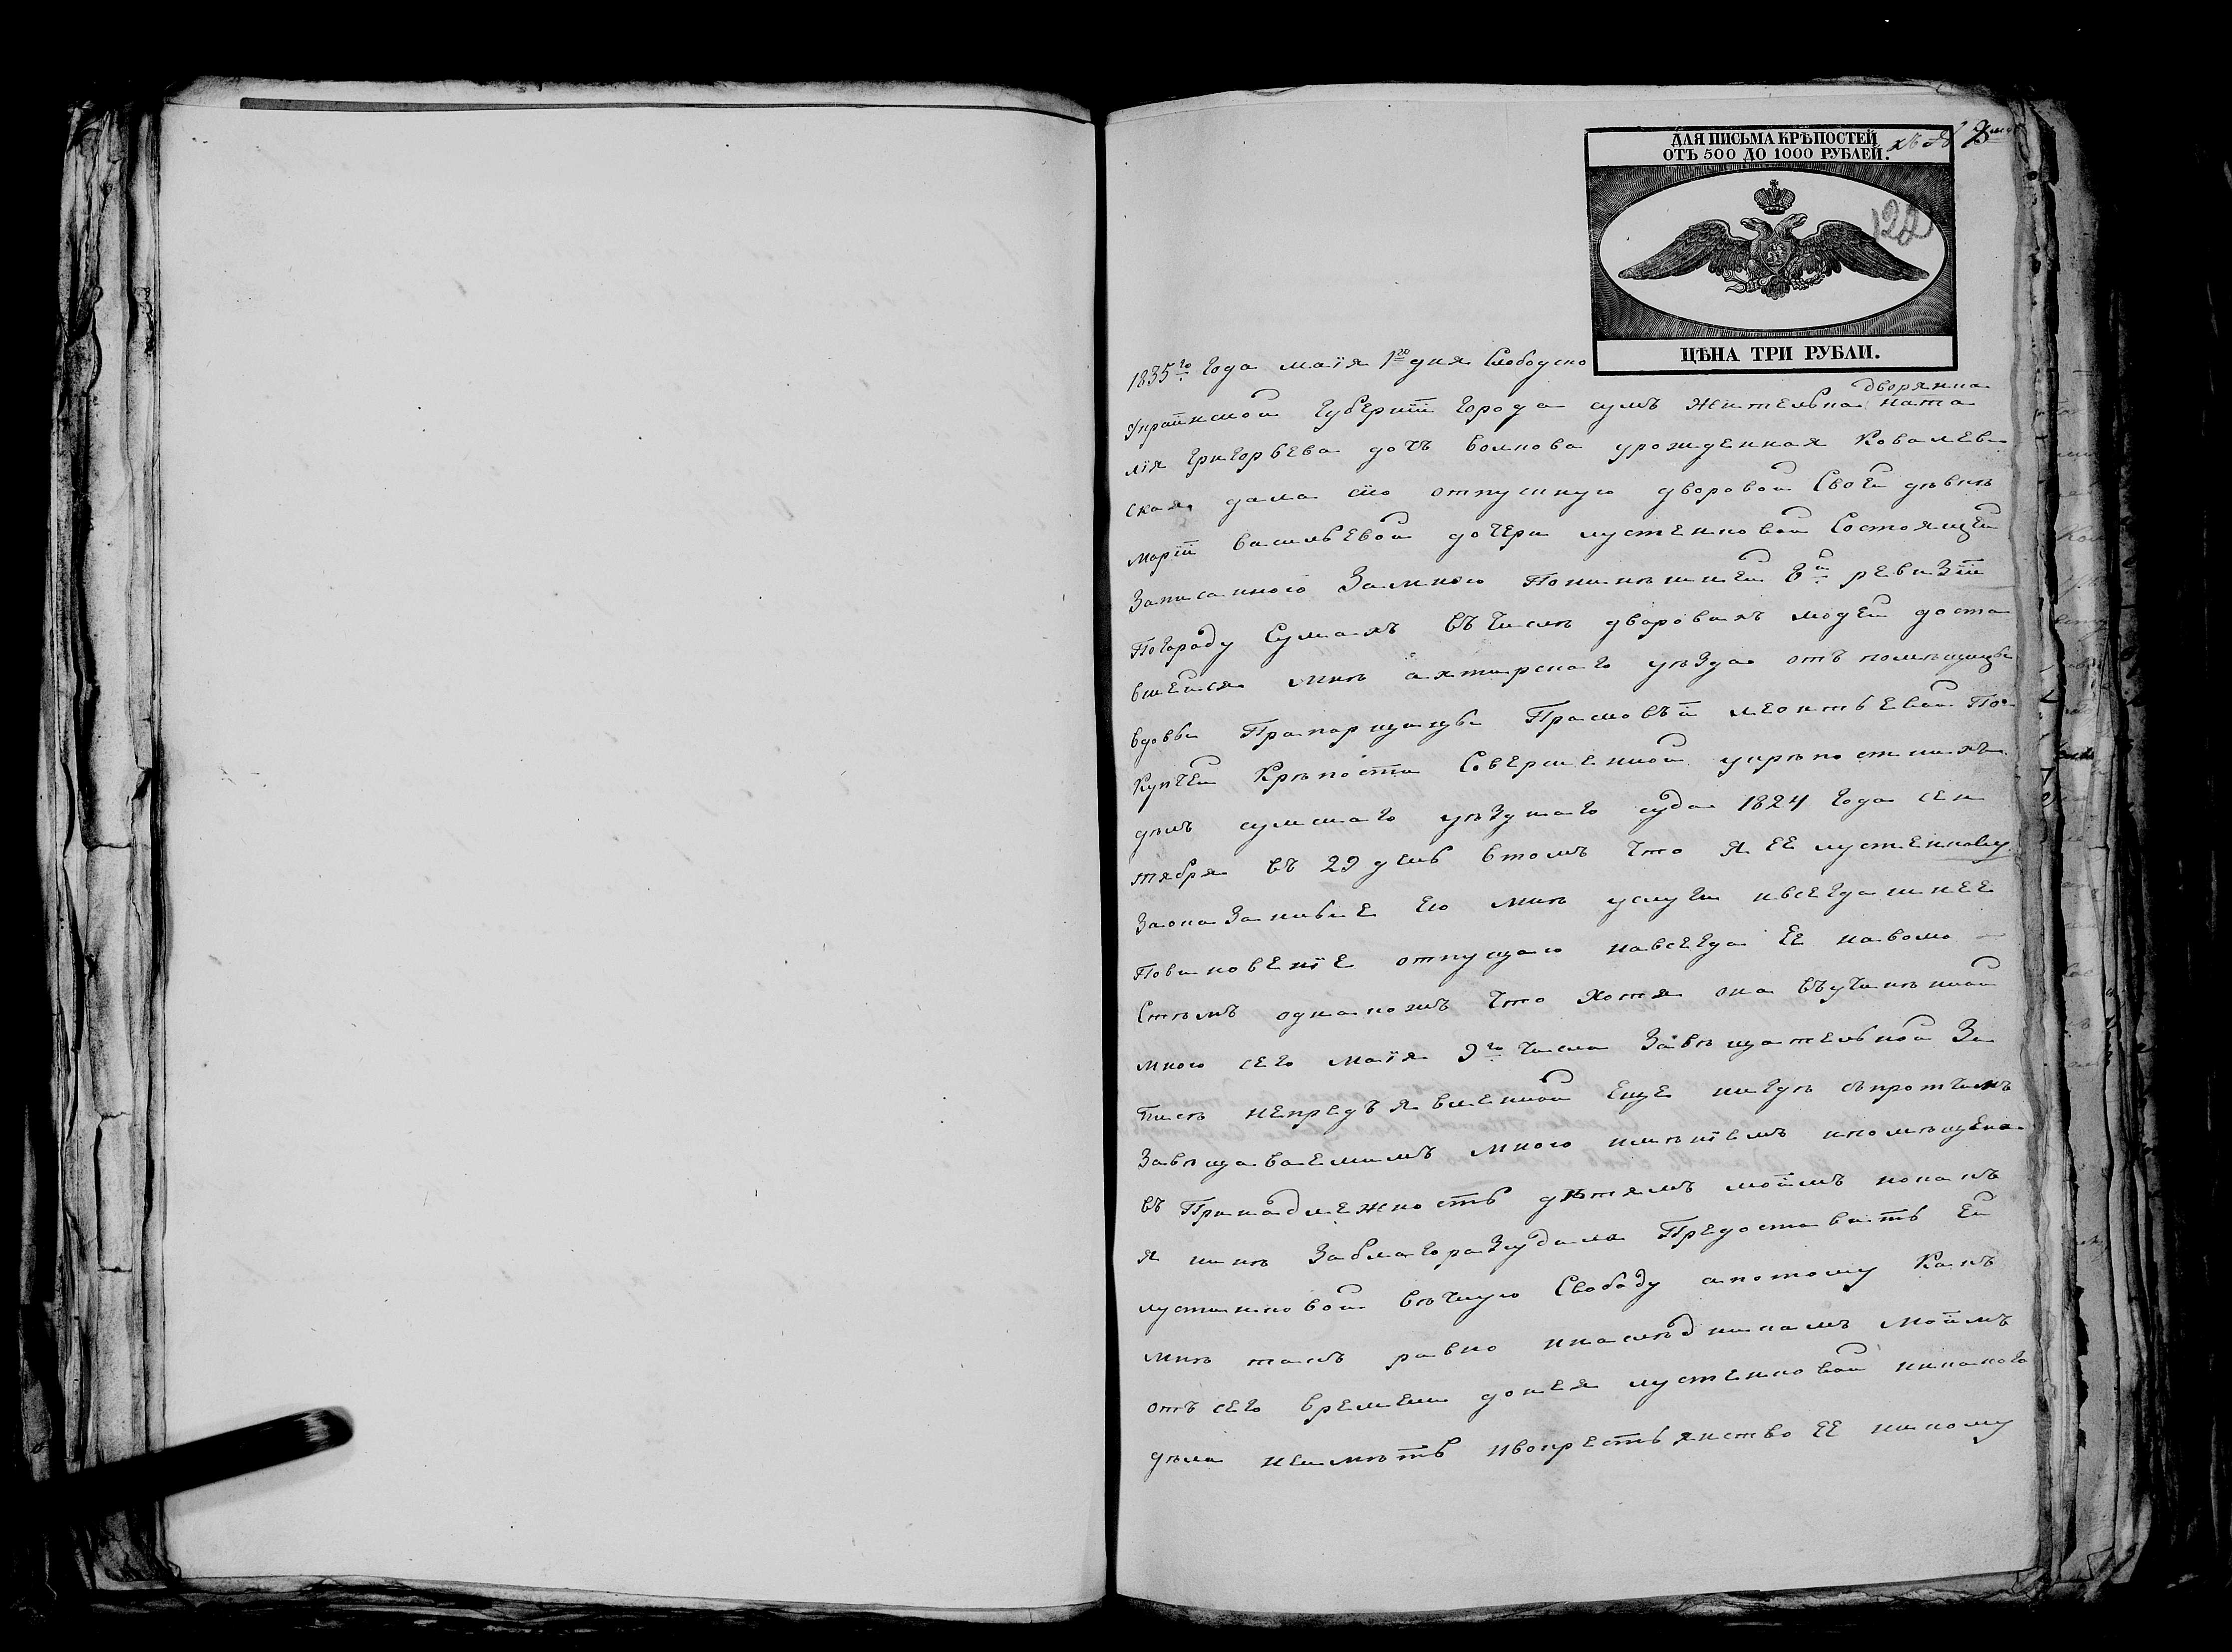 ДЛЯ ПИСЬМА КРѢПОСТЕЙ
ОТЪ 500 ДО 1000 РУБЛЕЙ.
122
ЦѢНА ТРИ РУБЛИ.
1835го года маія 1го дня Слободско
Украинской губерніи города сумъ жительна дворянка ната
лія григорьева дочь волкова урожденная Ковалев
ская дала сію отпускную дворовой своей дѣвкѣ
маріи васильевой дочери лустенковой состоящей
Записанною Замною Понинѣшней 8й ревизіи
Погораду Сумамъ въ числѣ дворовыхъ людей доста
вшейся мнѣ ахтирскаго уѣзда отъ помѣщицы
вдовы Прапорщицы Прасковьи леонтьевой По
Купчей Крѣпости Совершенной укрѣпостныхъ
дѣлъ сумскаго уѣзднаго суда 1824 года сен
тября въ 29 день втомъ что я ее лустенкову
Заоказанные ею мнѣ услуги ивсегдашнее
Повиновеніе отпущаю навсегда ее наволю
Стѣмъ однакожъ что хотя она въучиненной
мною сего маія 9го числа Завѣщательной За
писѣ непредъявленной еще нигдѣ съпротчимъ
Завѣщаваемимъ мною имѣніемъ ипомѣщена
въ Принадлежность дѣтямъ моимъ нокакъ
я нинѣ Заблагоразсудила Предоставить ей
лустинковой вѣчную Свободу апотому Какъ
мнѣ такъ равно инаслѣдникамъ моимъ
отъ сего времени донея лустенковой никакого
дѣла неимѣть ивокрестьянство ее никому